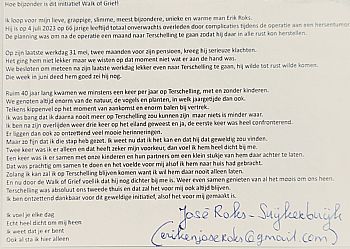 Hoe bijzonder is dit initiatief Walk of Grief!
Ik loop voor mijn lieve, grappige, slimme, meest bijzondere, unieke en warme man Erik Roks.
Hij is op 4 juli 2023 op 66 jarige leeftijd totaal onverwachts overleden door complicaties tijdens de operatie aan een hersentumor
De planning was om na de operatie een maand naar Terschelling te gaan zodat hij daar in alle rust kon herstellen.
Op zijn laatste werkdag 31 mei, twee maanden voor zijn pensioen, kreeg hij serieuze klachten.
Het ging hem niet lekker maar we wisten op dat moment niet wat er aan de hand was.
We besloten om meteen na zijn laatste werkdag lekker even naar Terschelling te gaan, hij wilde tot rust wilde komen.
Die week in juni deed hem goed zei hij nog.
Ruim 40 jaar lang kwamen we minstens een keer per jaar op Terschelling, met en zonder kinderen.
We genoten altijd enorm van de natuur, de vogels en planten, in welk jaargetijde dan ook.
Telkens kippenvel op het moment van aankomst en enorm balen bij vertrek.
Ik was bang dat ik daarna nooit meer op Terschelling zou kunnen zijn maar niets is minder waar.
Ik ben na zijn overlijden weer drie keer op het eiland geweest en ja, de eerste keer was heel confronterend.
Er liggen dan ook zo ontzettend veel mooie herinneringen.
Maar zo fijn dat ik die stap heb gezet. Ik weet nu dat ik het kan en dat hij dat geweldig zou vinden.
Twee keer was ik er alleen en dat heeft zeker mijn voorkeur, dan voel ik hem heel dicht bij me.
Een keer was ik er samen met onze kinderen en hun partners om een klein stukje van hem daar achter te laten.
Dat was prachtig om samen te doen en het voelde voor mij alsof ik hem naar huis had gebracht.
Zolang ik kan zal ik op Terschelling blijven komen want ik wil hem daar nooit alleen laten.
En nu door de Walk of Grief voel ik dat hij nog dichter bij me is. Weer even samen genieten van al het moois om ons heen.
Terschelling was absoluut ons tweede thuis en dat zal het voor mij ook altijd blijven.
Ik ben ontzettend dankbaar voor dit geweldige initiatief, alsof het voor mij gemaakt is.
Ik voel je elke dag
Echt heel dicht om mij heen
Ik weet dat je er bent
Ook al sta ik hier alleen
José Roks - Suijkerbuijk
(erikenjoseroks@gmail.com)